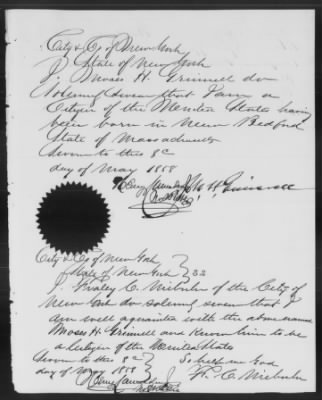 City & Co of New York
State of New York
I. Moses H. Grinnell do
Solemnly Swear that I am a
Citizen of the United States having
been born in New Bedford
State of Massachusetts
Sworn to this 8th
day of May 1858
M. H. Grinnell
City & Co of New York
State of New York } SS
I. Finley C. Niebuhr of the City of
New York do solemnly swear that I
am well acquainted with the above named
Moses H. Grinnell and Know him to be
a Citizen of the United States
Sworn to this 8th So help me God
day of May 1858 F. C. Niebuhr